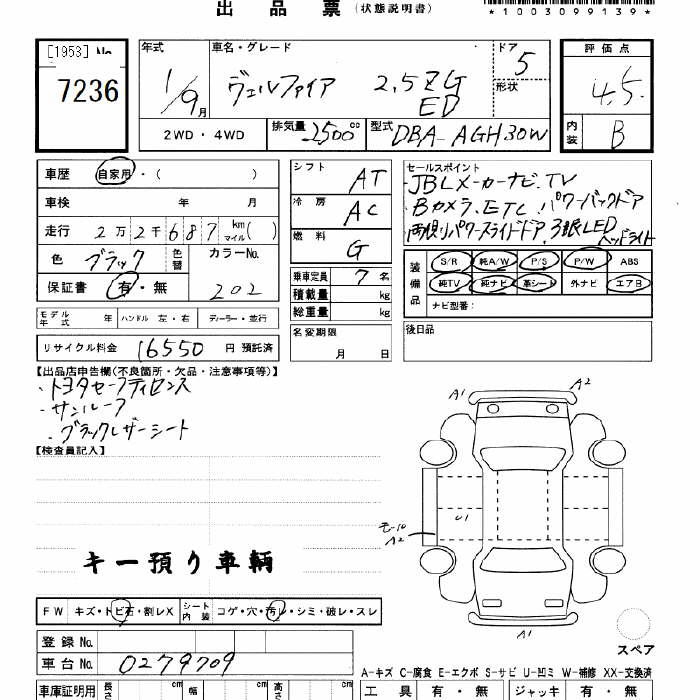 出品票 (状態説明書)
*1003099139*
[1953] No.
7236
年式
1/9月
車名・グレード
ヴェルファイア 2.5ZG
ED
ドア
5
形状
評価点
4.5
内装
B
2WD・4WD
排気量 2500cc
型式 DBA-AGH30W
車歴 自家用・( )
車検 年 月
走行 2万2千687km マイル( )
色 ブラック 色替
カラーNo. 202
保証書 有・無
モデル年式 年 ハンドル 左・右 ディーラー・並行
リサイクル料金 16550 円 預託済
シフト AT
冷房 AC
燃料 G
乗車定員 7名
積載量 kg
総重量 kg
名変期限
月 日
セールスポイント
・JBLメーカーナビ.TV
・Bカメラ.ETC パワーバックドア
・両側パワースライドドア.3眼LEDヘッドライト
装備品
S/R 純A/W P/S P/W ABS
純TV 純ナビ 革シート 外ナビ エアB
ナビ型番:
後日品
【出品店申告欄(不良箇所・欠品・注意事項等)】
・トヨタセーフティセンス
・サンルーフ
・ブラックレザーシート
【検査員記入】
キー預り車輌
A1 A2
U1
モ-10
A2
A1
スペア
FW キズ・トビ石・割レX シート内装 コゲ・穴・汚レ・シミ・破レ・スレ
登録No.
車台No. 0279709
A-キズ C-腐食 E-エクボ S-サビ U-凹ミ W-補修 XX-交換済
車庫証明用 長さ cm 幅 cm 高さ cm
工具 有・無 ジャッキ 有・無